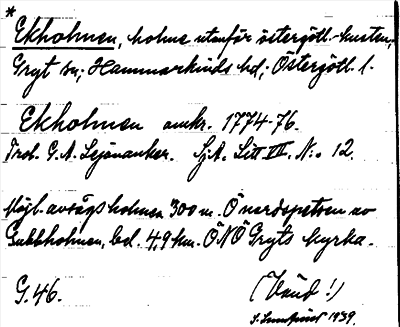 *
Ekholmen, holme utanför östergötl. kusten,
Gryt sn; Hammarkinds hd; Östergötl. l.
Ekholmen omkr. 1774-76.
Trol. G. A. Lejonanker. Sj.A. Lit VII. N:o 12.
Möjl. avsågs holmen 300 m. Ö nordspetsen av
Gubbholmen, bel. 4,9 km. ÖNÖ Gryts kyrka.
G. 46.
(Vänd!)
1939.